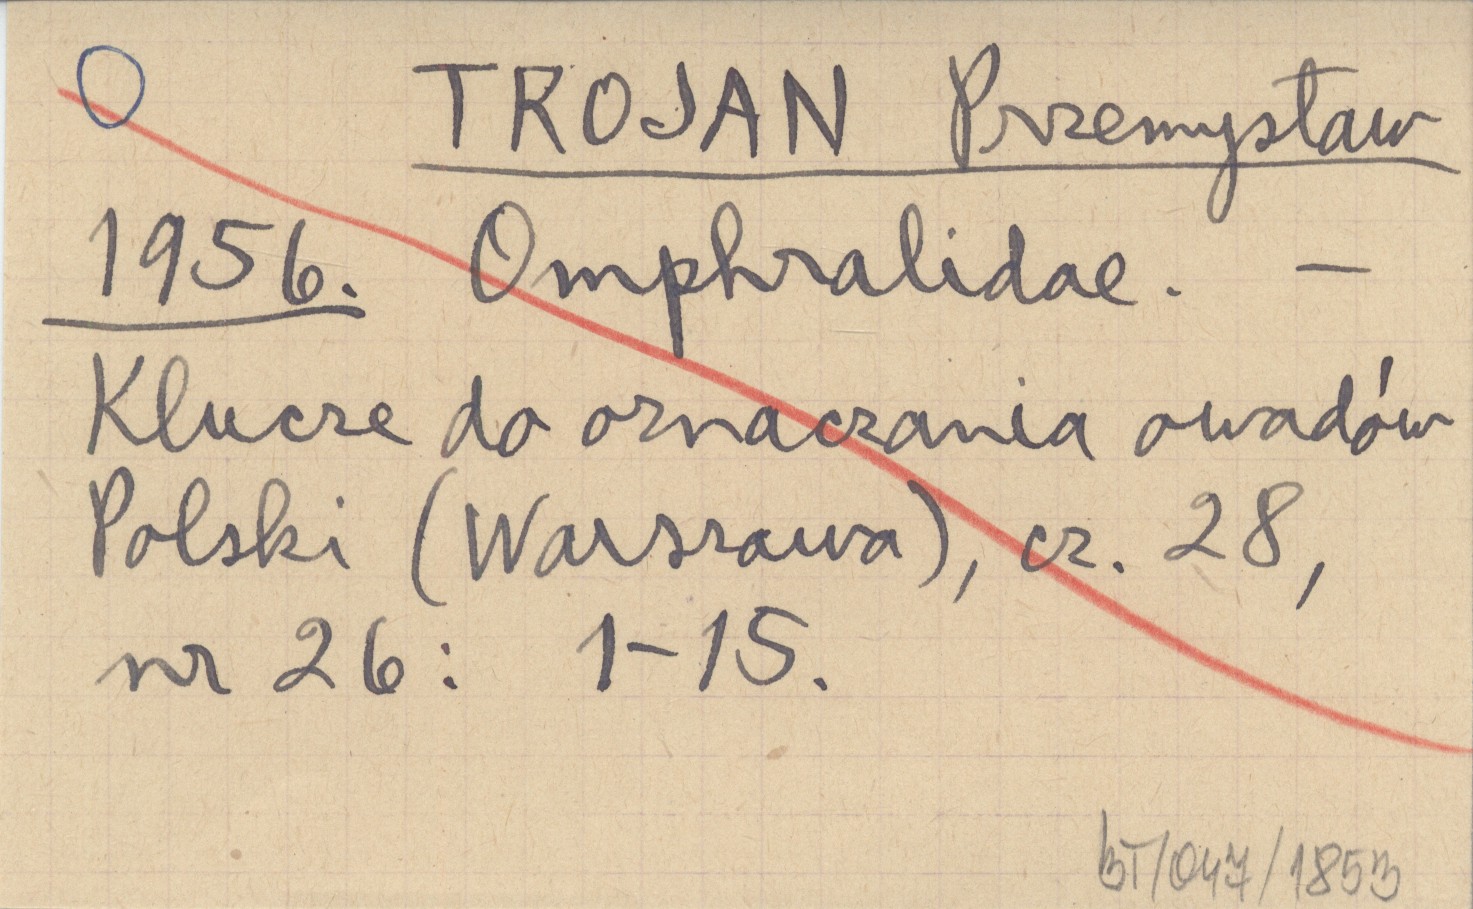 TROJAN Przemysław
1956. Omphralidae. –
Klucze do oznaczania owadów
Polski (Warszawa), cz. 28,
nr 26: 1–15.
BT/047/1853